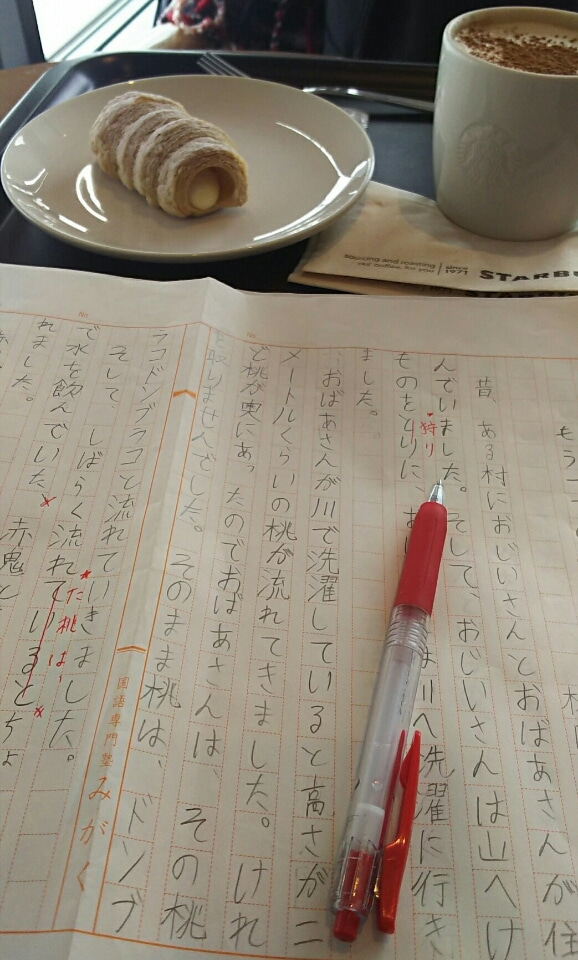 sourcing and roasting
real coffee, for you
since
1971
STARB
No.
No.
もう
昔、ある村におじいさんとおばあさんが住
んでいました。そして、おじいさんは山へけ
ものをとりに、お川へ洗濯に行き
狩り
ました。
おばあさんが川で洗濯していると高さが二
メートルくらいの桃が流れてきました。けれ
ど桃が奥にあったのでおばあさんは、その桃
を取りませんでした。そのまま桃は、ドンブ
国語専門塾みがく
ラコドンブラコと流れていきました。
そして、しばらく流れているとちょ
た桃は、
で水を飲んでいた、赤鬼と
れました。